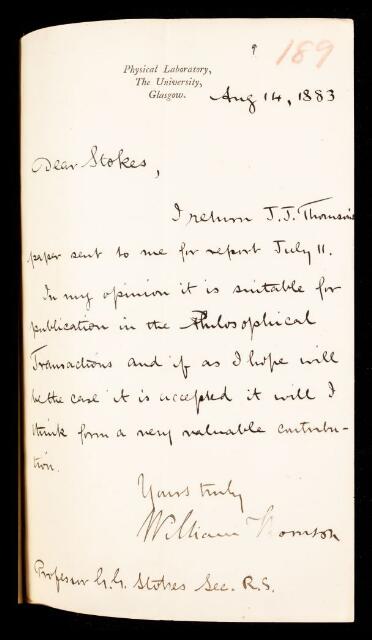 189
Physical Laboratory,
The University,
Glasgow.
Aug 14, 1883
Dear Stokes,
I return J.J. Thomson's
paper sent to me for report July 11.
In my opinion it is suitable for
publication in the Philosophical
Transactions and if as I hope will
be the case it is accepted it will I
think form a very valuable contribu-
tion.
Yours truly
William Thomson
Professor G.G. Stokes Sec. R.S.